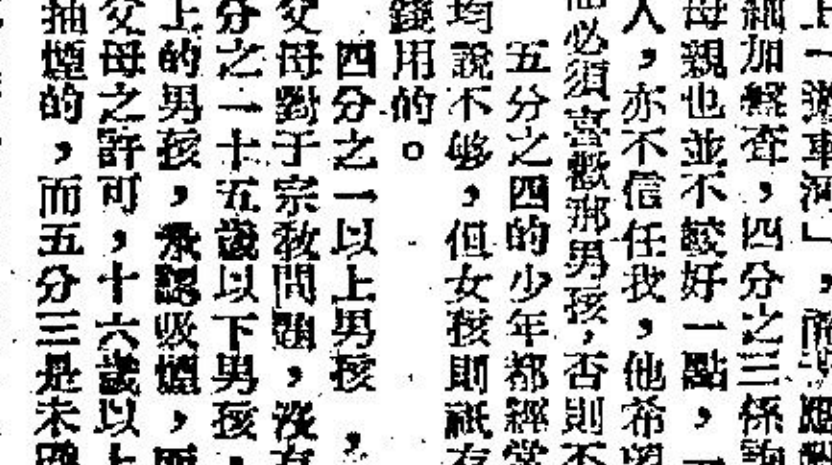 上一遊車河」，
細加盤查，四分之三係詢
母親也並不較好一點，一
人，亦不信任我，他希望
必須喜歡那男孩，否則不
五分之四的少年都經常
均說不够，但女孩則祇有
錢用的。
四分之一以上男孩，
父母對于宗教問題，沒有
分之一十五歲以下男孩，
上的男孩，承認吸煙，而
父母之許可，十六歲以上
抽煙的，而五分三是未